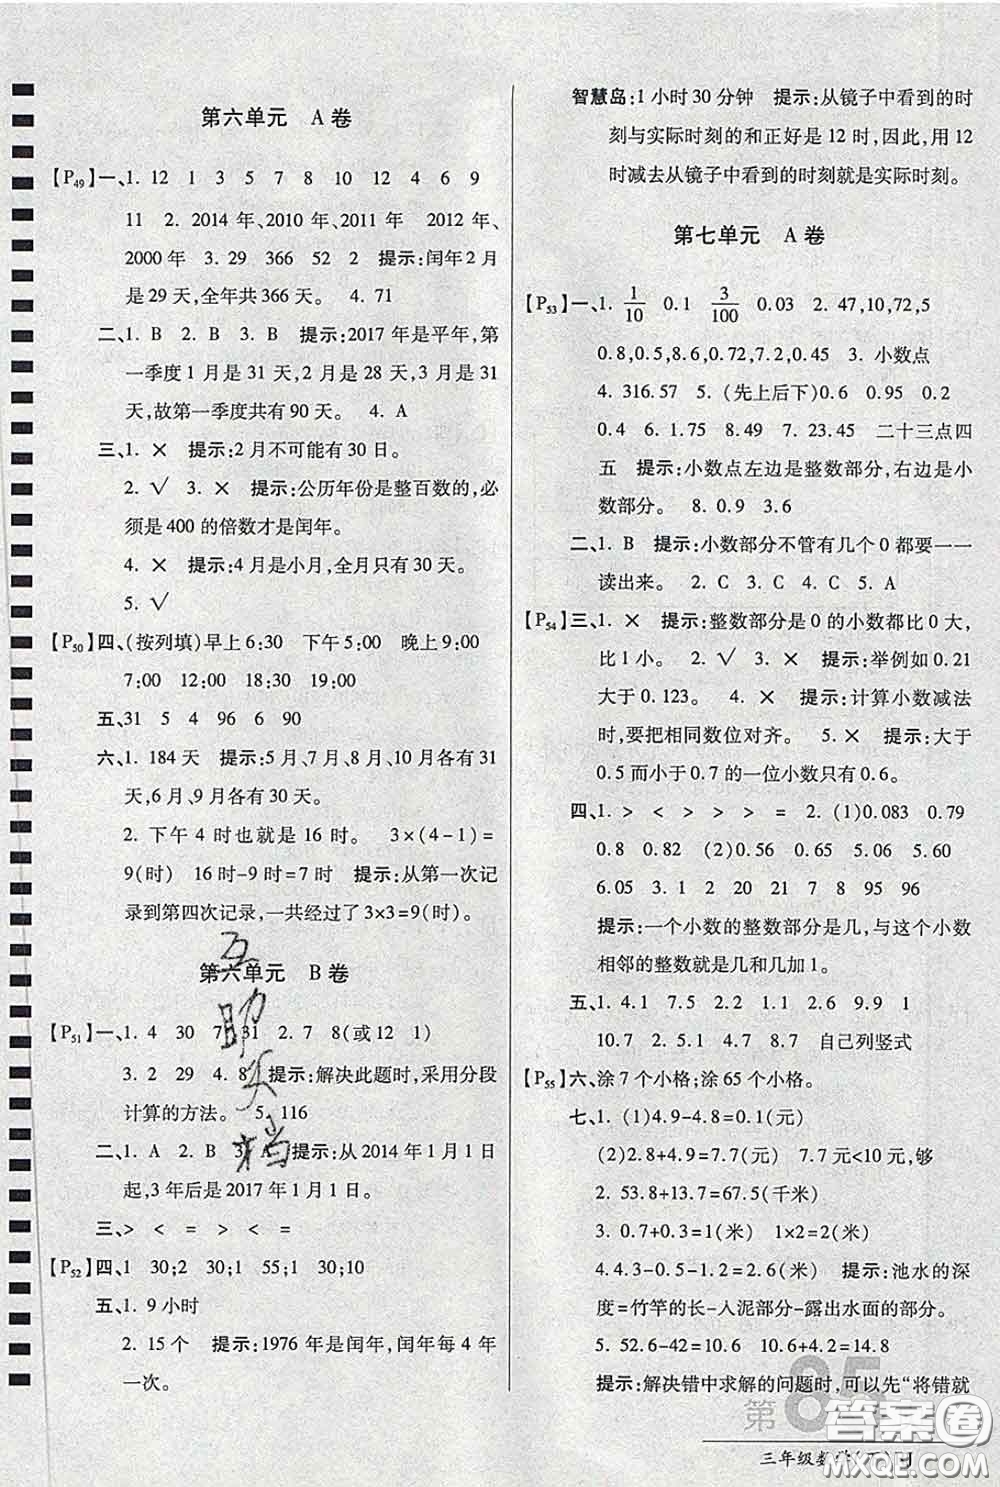 第六单元　A 卷
【P49】一、1. 12　1　3　5　7　8　10　12　4　6　9
11　2. 2014 年、2010 年、2011 年　2012 年、
2000 年　3. 29　366　52　2　提示:闰年 2 月
是 29 天,全年共 366 天。　4. 71
二、1. B　2. B　3. B　提示:2017 年是平年,第
一季度 1 月是 31 天,2 月是 28 天,3 月是 31
天,故第一季度共有 90 天。　4. A
三、1. ×　提示:2 月不可能有 30 日。
2. √　3. ×　提示:公历年份是整百数的,必
须是 400 的倍数才是闰年。
4. ×　提示:4 月是小月,全月只有 30 天。
5. √
【P50】四、(按列填)早上 6:30　下午 5:00　晚上 9:00
7:00　12:00　19:00　18:30　19:30
五、31　5　4　96　6　90
六、1. 184 天　提示:5 月、7 月、8 月、10 月各有 31
天,6 月、9 月各有 30 天。
2. 下午 4 时也就是 16 时。　3×(4-1)=
9(时)　16 时-9 时=7 时　提示:从第一次记
录到第四次记录,一共经过了 3×3=9(时)。
第六单元　B 卷
互助头档
【P51】一、1. 4　30　7　31　2. 7　8(或 12　1)
3. 2　29　4. 8　提示:解决此题时,采用分段
计算的方法。　5. 116
二、1. A　2. B　3. A　提示:从 2014 年 1 月 1 日
起,3 年后是 2017 年 1 月 1 日。
三、>　<　=　>　<　=
【P52】四、1　30;2　30;1　55;1　30;10
五、1. 9 小时
2. 15 个　提示:1976 年是闰年,闰年每 4 年
一次。
智慧岛:1 小时 30 分钟　提示:从镜子中看到的时
刻与实际时刻的和正好是 12 时,因此,用 12
时减去从镜子中看到的时刻就是实际时刻。
第七单元　A 卷
【P53】一、1. 1/10　0.1　3/100　0.03　2. 47,10,72,5
0.8,0.5,8.6,0.72,7.2,0.45　3. 小数点
4. 316.57　5. (先上后下)0.6　0.95　0.2
0.4　6. 1.75　8.49　7. 25.55　二十三点四
五　提示:小数点左边是整数部分,右边是小
数部分。　8. 0.9　3.6
二、1. B　提示:小数部分不管有几个 0 都要一一
读出来。　2. C　3. C　4. C　5. A
【P54】三、1. ×　提示:整数部分是 0 的小数都比 0 大,
比 1 小。　2. √　3. ×　提示:举例如 0.21
大于 0.123。　4. ×　提示:计算小数减法
时,要把相同数位对齐。　5. ×　提示:大于
0.5 而小于 0.7 的一位小数只有 0.6。
四、1. >　<　>　>　>　=　2. (1)0.083　0.79
0.8　0.82　(2)0.56　0.65　5.06　5.60
6.05　3. 1　2　20　21　7　8　95　96
提示:一个小数的整数部分是几,与这个小数
相邻的整数就是几和几加 1。
五、1. 4.1　7.5　2.2　2. 6　9.9　1
10.7　2. 4.8　4.7　8.7　自己列竖式
【P55】六、涂 7 个小格;涂 65 个小格。
七、1. (1)4.9-4.8=0.1(元)
(2)2.8+4.9=7.7(元)　7.7 元<10 元,够
2. 53.8+13.7=67.5(千米)
3. 0.7+0.3=1(米)　1×2=2(米)
4.4.3-1.6-0.7=2(米)　提示:池水的深
度=竹竿的长-入泥部分-露出水面的部分。
5. 52.6-42=10.6　10.6+4.2=14.8
提示:解决错中求解的问题时,可以先“将错就
第85
答案圈
三年级数学(下)RJ